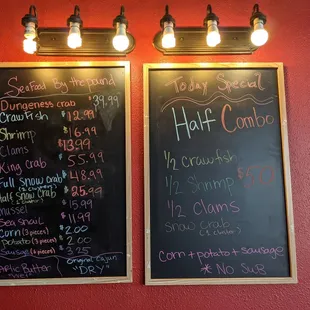 Seafood By the pound
Dungeness crab $39.99
Crawfish $12.99
Shrimp $16.99
Clams $13.99
King Crab $55.99
Full Snow Crab $48.99
Half Snow Crab $25.99
mussel $15.99
Sea snail $11.99
Corn (3 pieces) $2.00
potato (3 pieces) $2.00
Sausage $3.25
Butter Original Cajun
"DRY"
Today Special
Half Combo
1/2 crawfish
1/2 Shrimp
1/2 Clams
Snow crab
(1 cluster)
corn + potato + sausage
* No SUB